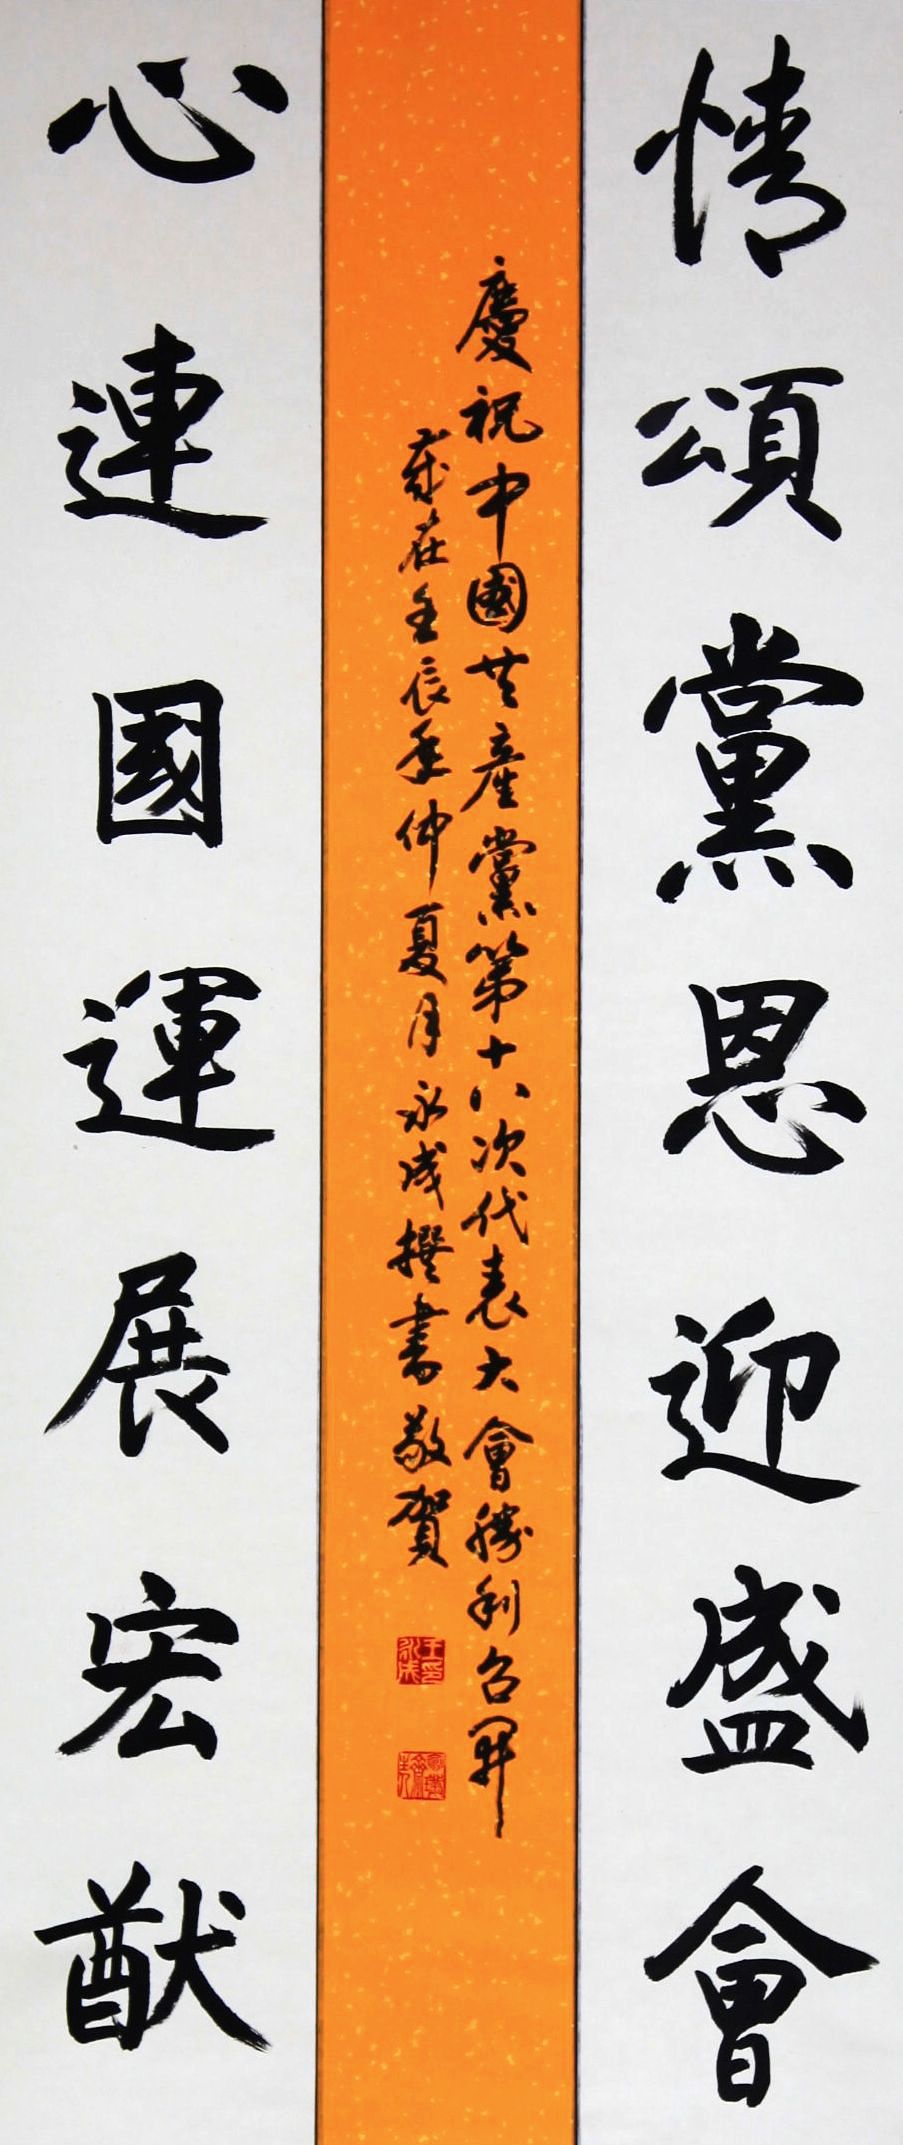 情頌黨恩迎盛會
慶祝中國共產黨第十八次代表大會勝利召開
歲在壬辰年仲夏月永成撰書敬賀
王印永成
心連國運展宏猷